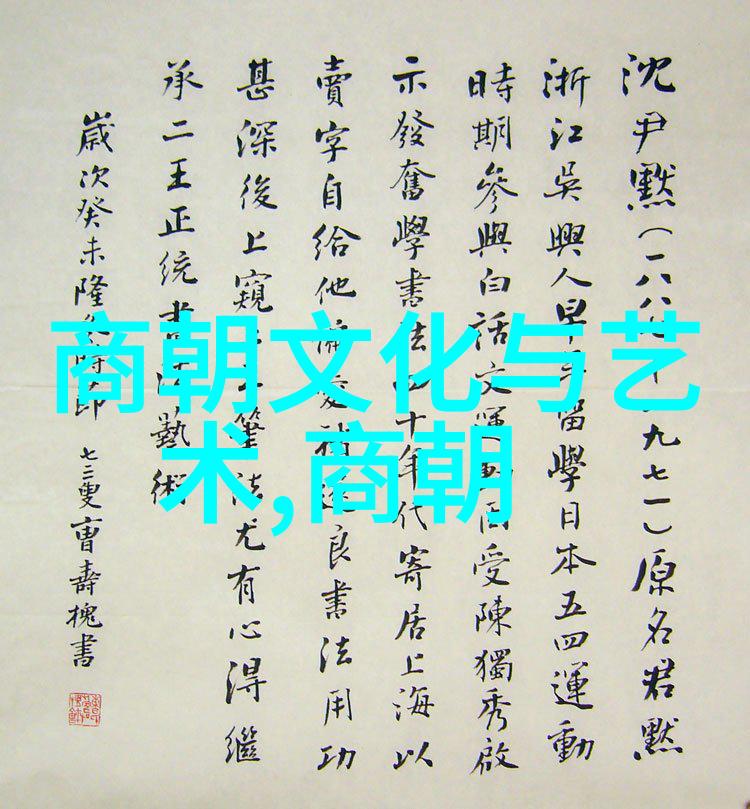 沈尹默(一八八 一九七一)原名君默
浙江吳興人早年留學日本五四運動
時期參與白話文運 因受陳獨秀啟
示發奮學書法四十年代寄居上海以
賣字自給他 愛 遂良書法用功
甚深後上窺二王筆法尤有心得繼
承二王正統書法藝術
歲次癸未隆冬時節 七三叟曹壽槐書
商朝文化与艺
术,商朝